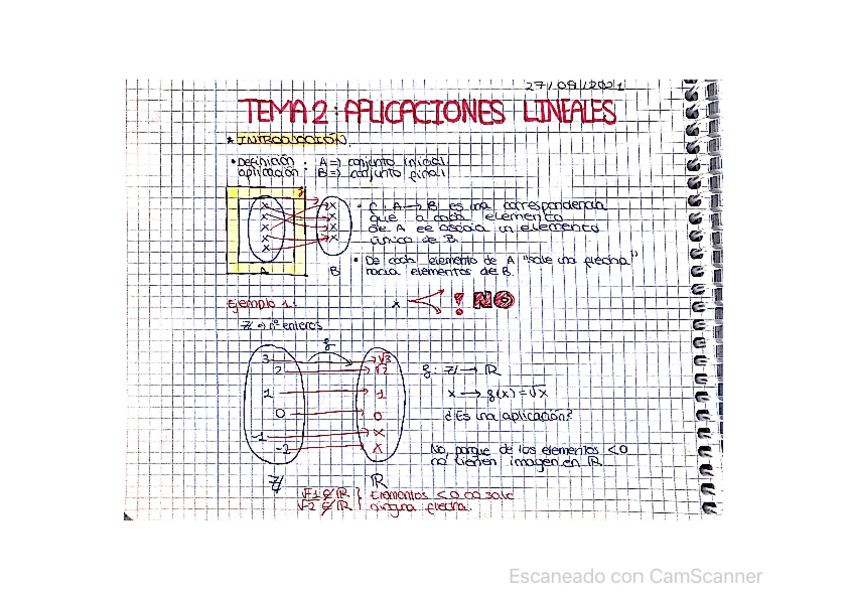 27/09/2021
TEMA 2: APLICACIONES LINEALES
* INTRODUCCIÓN.
• Definición : A => conjunto inicial
aplicación : B => conjunto final
• f: A → B es una correspondencia
que a cada elemento
de A se asocia un elemento
único de B.
A
B
• De cada elemento de A "sale una flecha"
hacia elementos de B.
Ejemplo 1:
x
! NO
Z => nº enteros
f
3 √3
2 √2
1 1
0 0
-1 x
-2 x
Z
R
f: Z → R
x → f(x) = √x
¿Es una aplicación?
No, porque de los elementos <0
no tienen imagen en R.
√-1 ∉ R } Elementos <0 no sale
√-2 ∉ R } ninguna flecha.
Escaneado con CamScanner